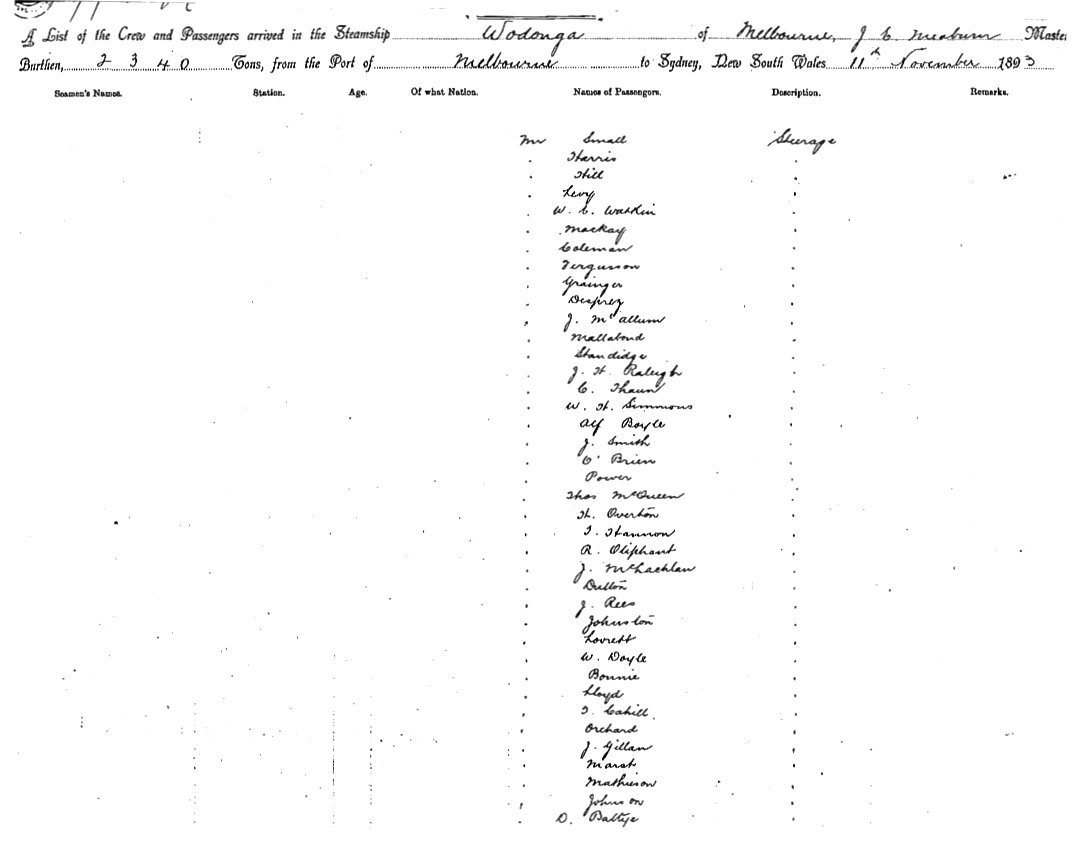 A List of the Crew and Passengers arrived in the Steamship Wodonga of Melbourne, J C Meaburn Master
Burthen, 2340 Tons, from the Port of Melbourne to Sydney, New South Wales 11th November 1893
Seamen's Names. Station. Age. Of what Nation. Names of Passengers. Description. Remarks.
Mr Small Steerage
. Harris .
. Hill .
. Levy .
. W. C. Watkin .
. Mackay .
. Coleman .
. Fergusson .
. Grainger .
. Desprez .
. J. McCallum .
. Mallabond .
. Standidge .
. J. H. Raleigh .
. C. Thaun .
. W. H. Simmons .
. Alf Boyle .
. J. Smith .
. O'Brien .
. Power .
. Thos McQueen .
. H. Overton .
. T. Hannon .
. R. Oliphant .
. J. McLachlan .
. Dutton .
. J. Rees .
. Johnston .
. Lovett .
. W. Doyle .
. Bonnie .
. Lloyd .
. T. Cahill .
. Orchard .
. J. Gillan .
. Marsh .
. Mathieson .
. Johnson .
. D. Battye .